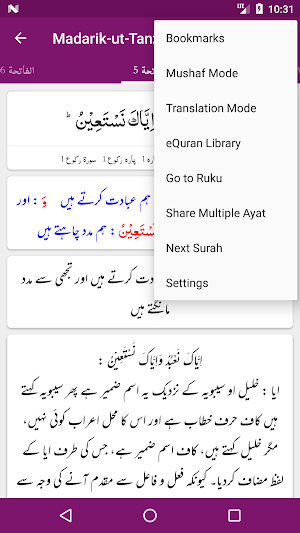 10:31
Madarik-ut-Tan
الفاتحة 6
فاتحة 5
Bookmarks
Mushaf Mode
Translation Mode
eQuran Library
Go to Ruku
Share Multiple Ayat
Next Surah
Settings
وَاِيَّاكَ نَسْتَعِيْنُ ؕ
پارہ رکوع ۱ سورۃ رکوع ۱
ہم عبادت کرتے ہیں وَ : اور
نَسْتَعِيْنُ : ہم مدد چاہتے ہیں
عبادت کرتے ہیں اور تجھی سے مدد
مانگتے ہیں
اِيَّاكَ نَعْبُدُ وَاِيَّاكَ نَسْتَعِيْنُ :
ایا : خلیل او سیبویہ کے نزدیک یہ اسم ضمیر ہے پھر سیبویہ کہتے
ہیں کاف حرف خطاب ہے اور اس کا محل اعراب کوئی نہیں،
مگر خلیل کہتے ہیں، کاف اسم ضمیر ہے، جس کی طرف ایا کے
لفظ مضاف کردیا۔ کیونکہ فعل و فاعل سے مقدم آنے کی وجہ سے